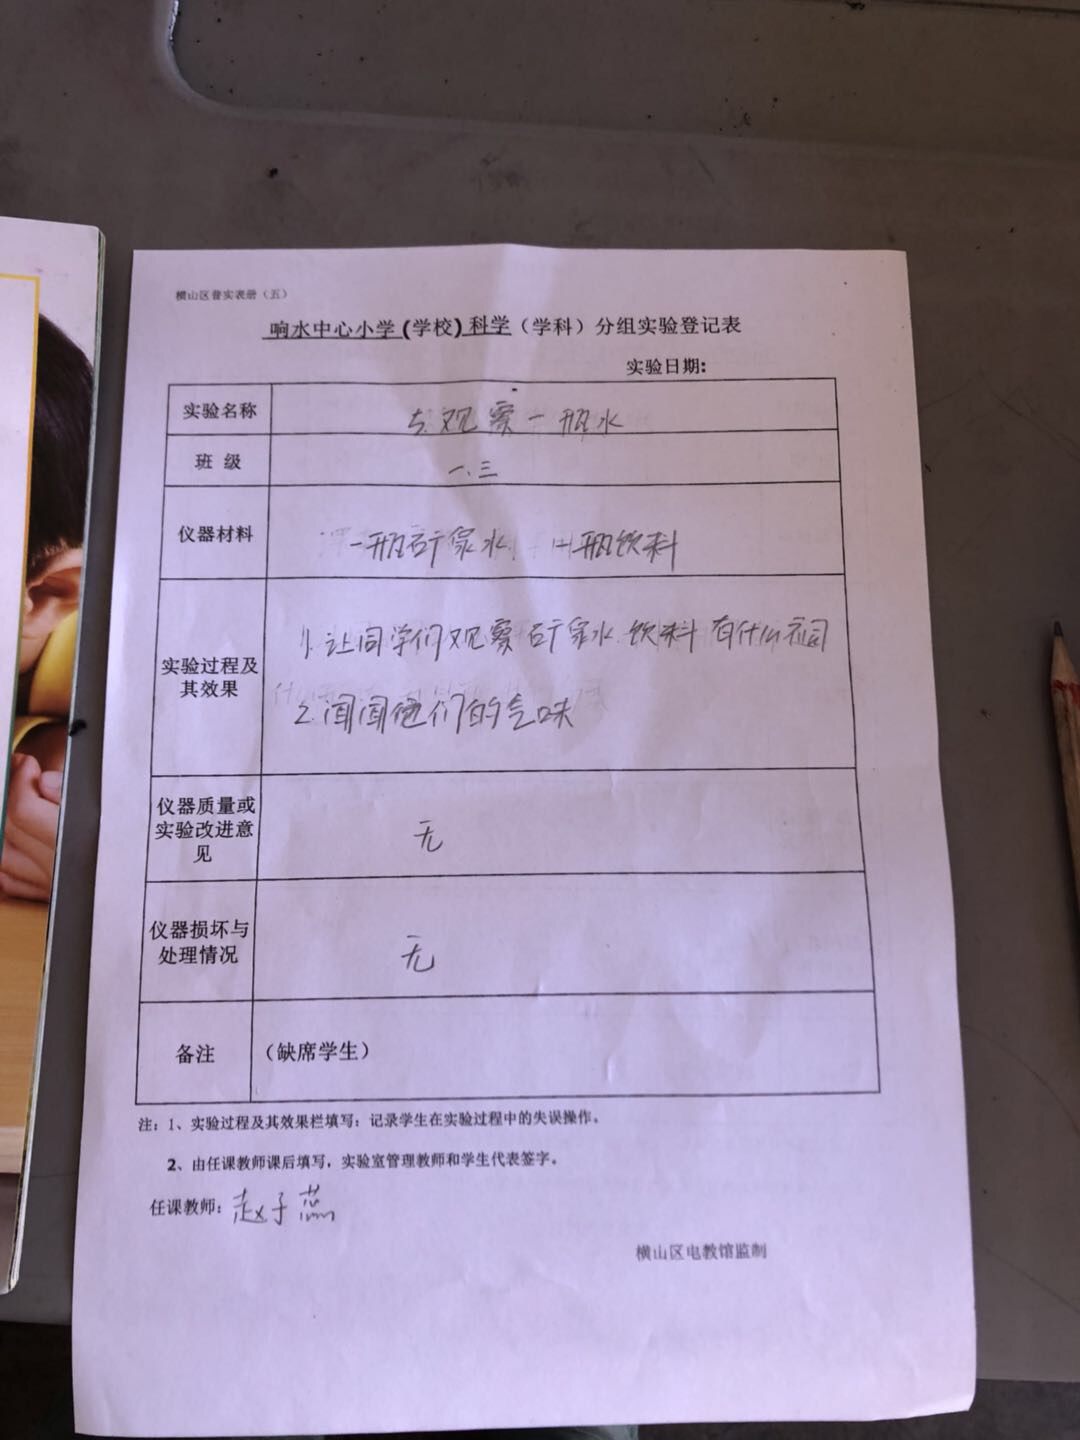 横山区普实表册（五）
响水中心小学(学校)科学（学科）分组实验登记表
实验日期:
实验名称
5.观察一瓶水
班 级
一.三
仪器材料
一瓶矿泉水 一瓶饮料
实验过程及
其效果
1.让同学们观察矿泉水.饮料有什么不同
2.闻闻他们的气味
仪器质量或
实验改进意
见
无
仪器损坏与
处理情况
无
备注
（缺席学生）
注：1、实验过程及其效果栏填写：记录学生在实验过程中的失误操作。
2、由任课教师课后填写，实验室管理教师和学生代表签字。
任课教师: 赵子蕊
横山区电教馆监制